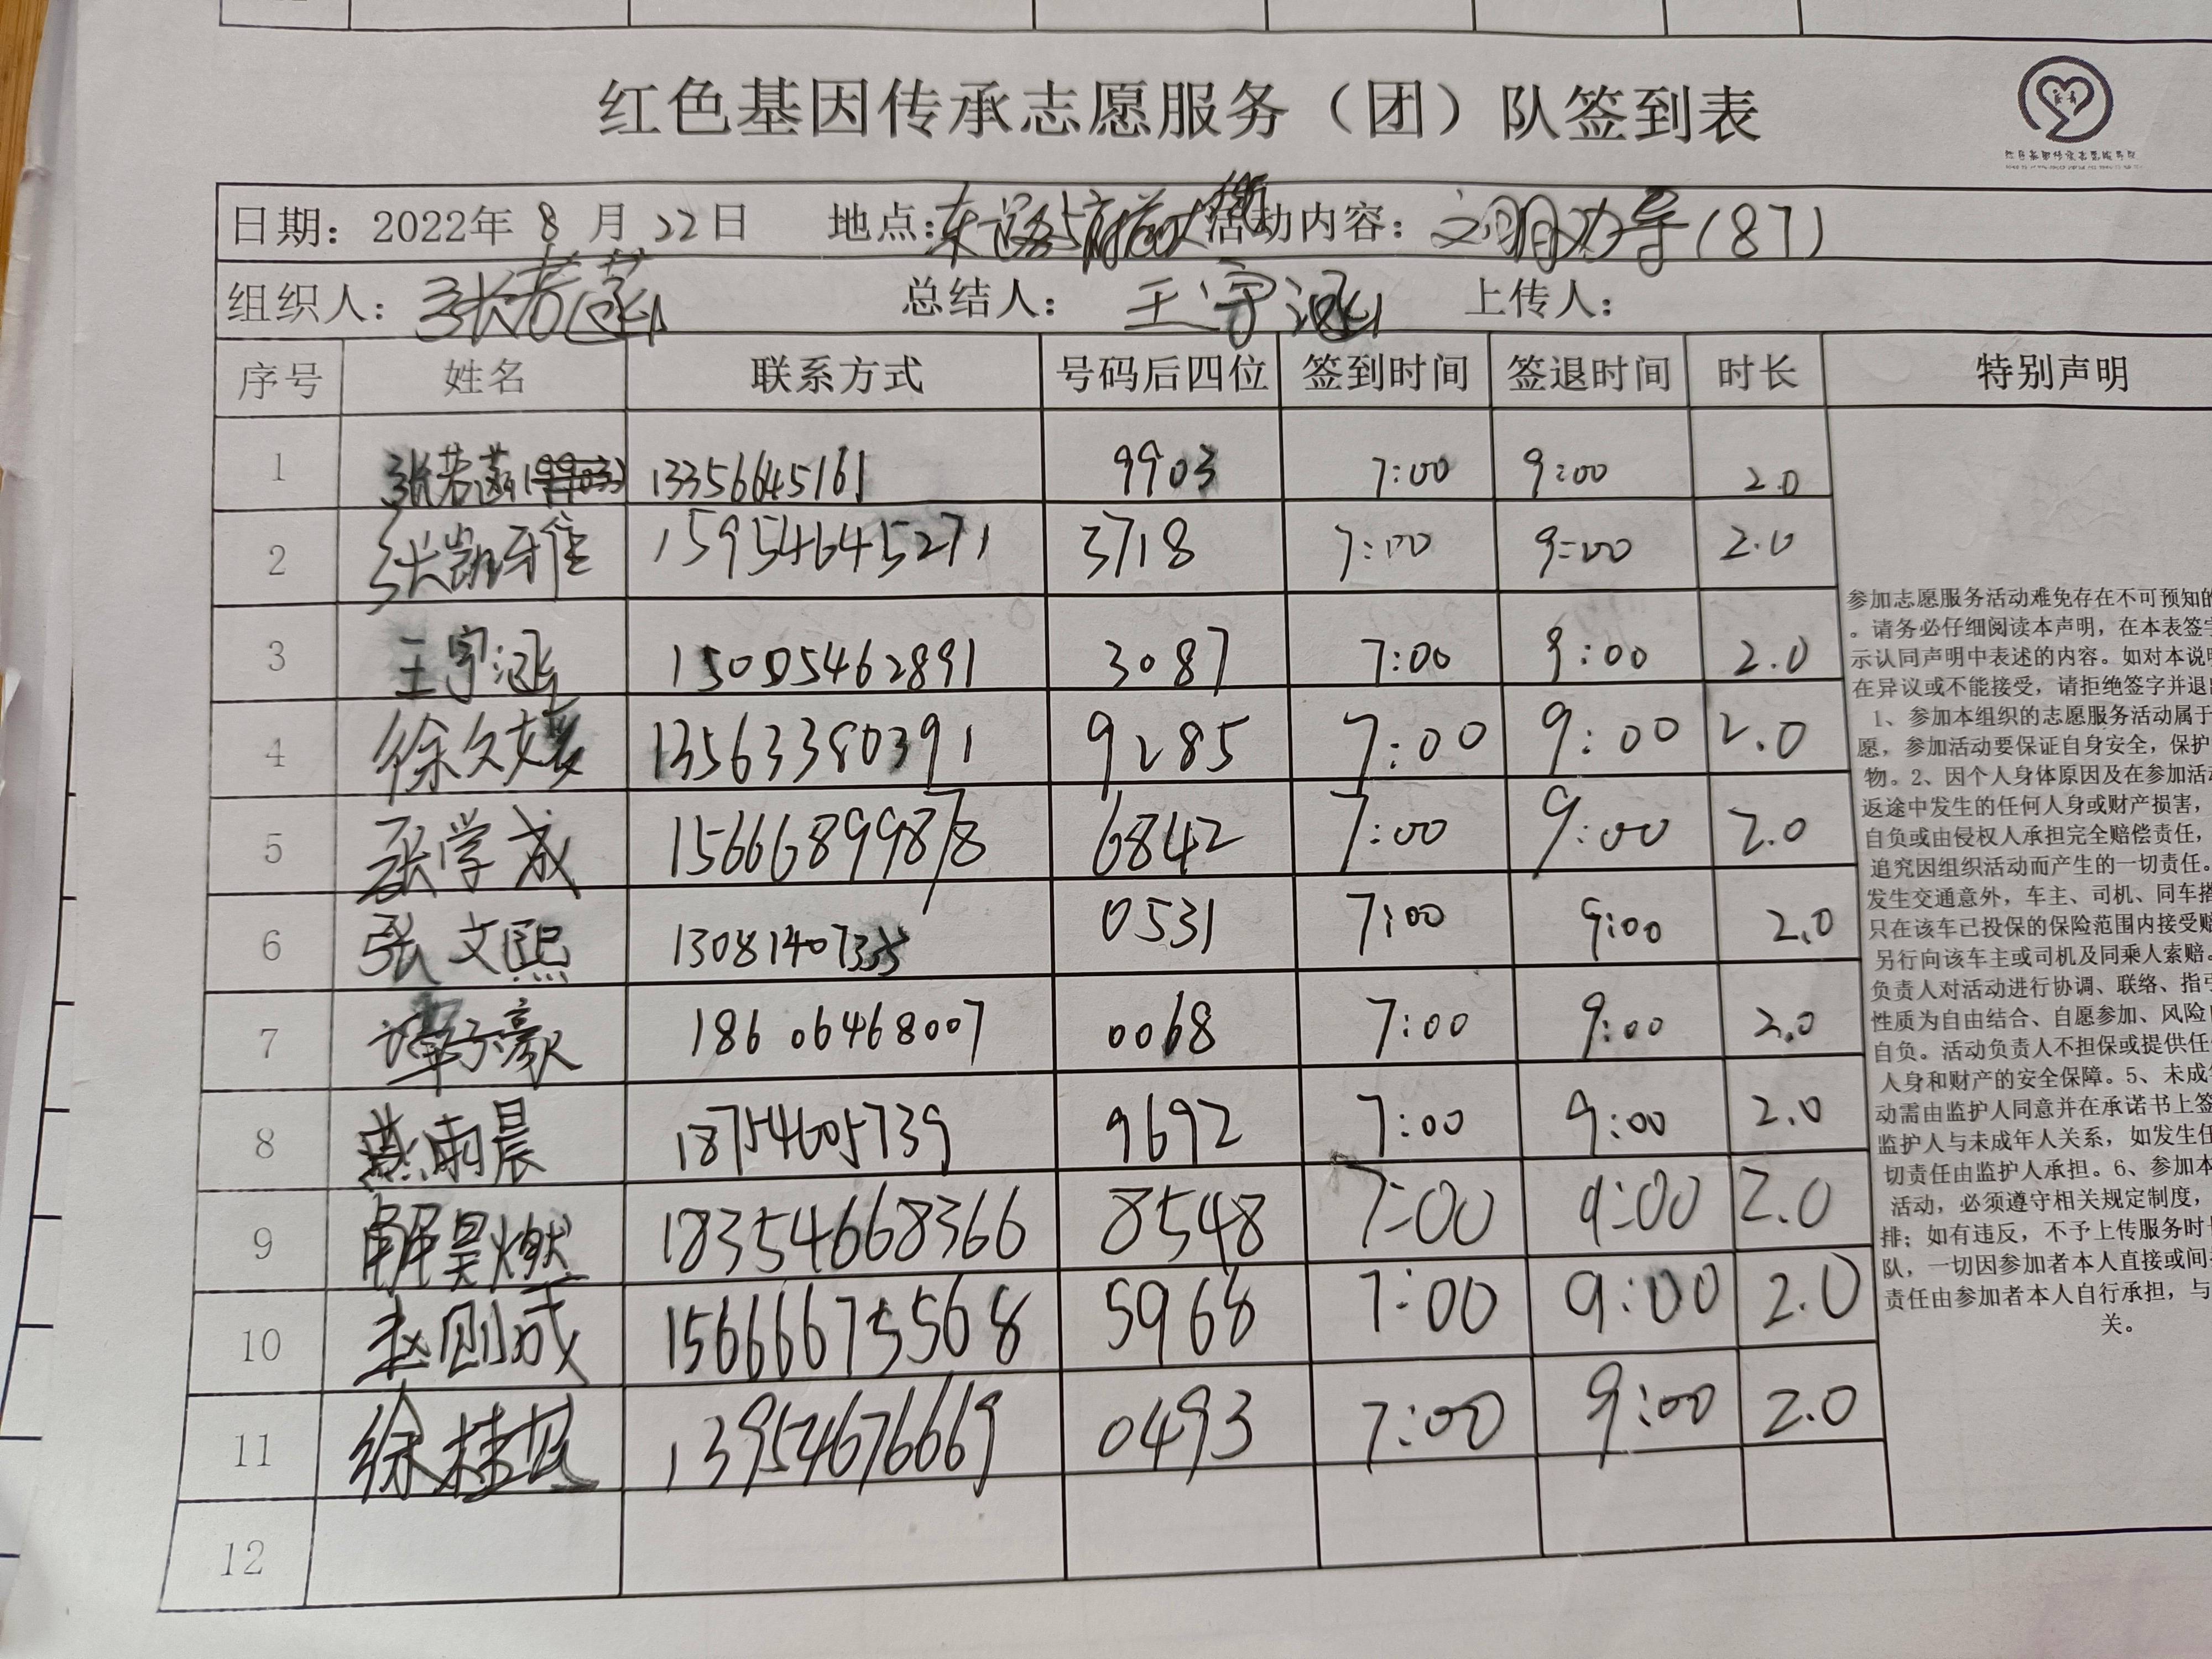 红色基因传承志愿服务（团）队签到表
日期：2022年 8 月 22日 地点：东 路与府前大街 活动内容：文明劝导(87)
组织人：张若菡 总结人：王宇涵 上传人：
序号 姓名 联系方式 号码后四位 签到时间 签退时间 时长 特别声明
1 张若菡 13356645161 9903 7:00 9:00 2.0
2 张凯雅 15954645271 3718 7:00 9:00 2.0
3 王宇涵 15005462891 3087 7:00 9:00 2.0
4 徐文媛 13563380391 9285 7:00 9:00 2.0
5 张学成 15666899878 6842 7:00 9:00 2.0
6 张文熙 13081407335 0531 7:00 9:00 2.0
7 谭子豪 18606468007 0068 7:00 9:00 2.0
8 燕雨晨 18754605739 9692 7:00 9:00 2.0
9 昊燃 18354668366 8548 7:00 9:00 2.0
10 赵则成 15666675568 5968 7:00 9:00 2.0
11 徐桂 13954676669 0493 7:00 9:00 2.0
12
参加志愿服务活动难免存在不可预知的
。请务必仔细阅读本声明，在本表签字
示认同声明中表述的内容。如对本说明
在异议或不能接受，请拒绝签字并退
1、参加本组织的志愿服务活动属于
愿，参加活动要保证自身安全，保护
物。2、因个人身体原因及在参加活动
返途中发生的任何人身或财产损害，
自负或由侵权人承担完全赔偿责任，
追究因组织活动而产生的一切责任。
发生交通意外，车主、司机、同车搭
只在该车已投保的保险范围内接受赔
另行向该车主或司机及同乘人索赔。
负责人对活动进行协调、联络、指引
性质为自由结合、自愿参加、风险
自负。活动负责人不担保或提供任
人身和财产的安全保障。5、未成年
动需由监护人同意并在承诺书上签
监护人与未成年人关系，如发生任
切责任由监护人承担。6、参加本
活动，必须遵守相关规定制度，
排；如有违反，不予上传服务时长
队，一切因参加者本人直接或间
责任由参加者本人自行承担，与
关。